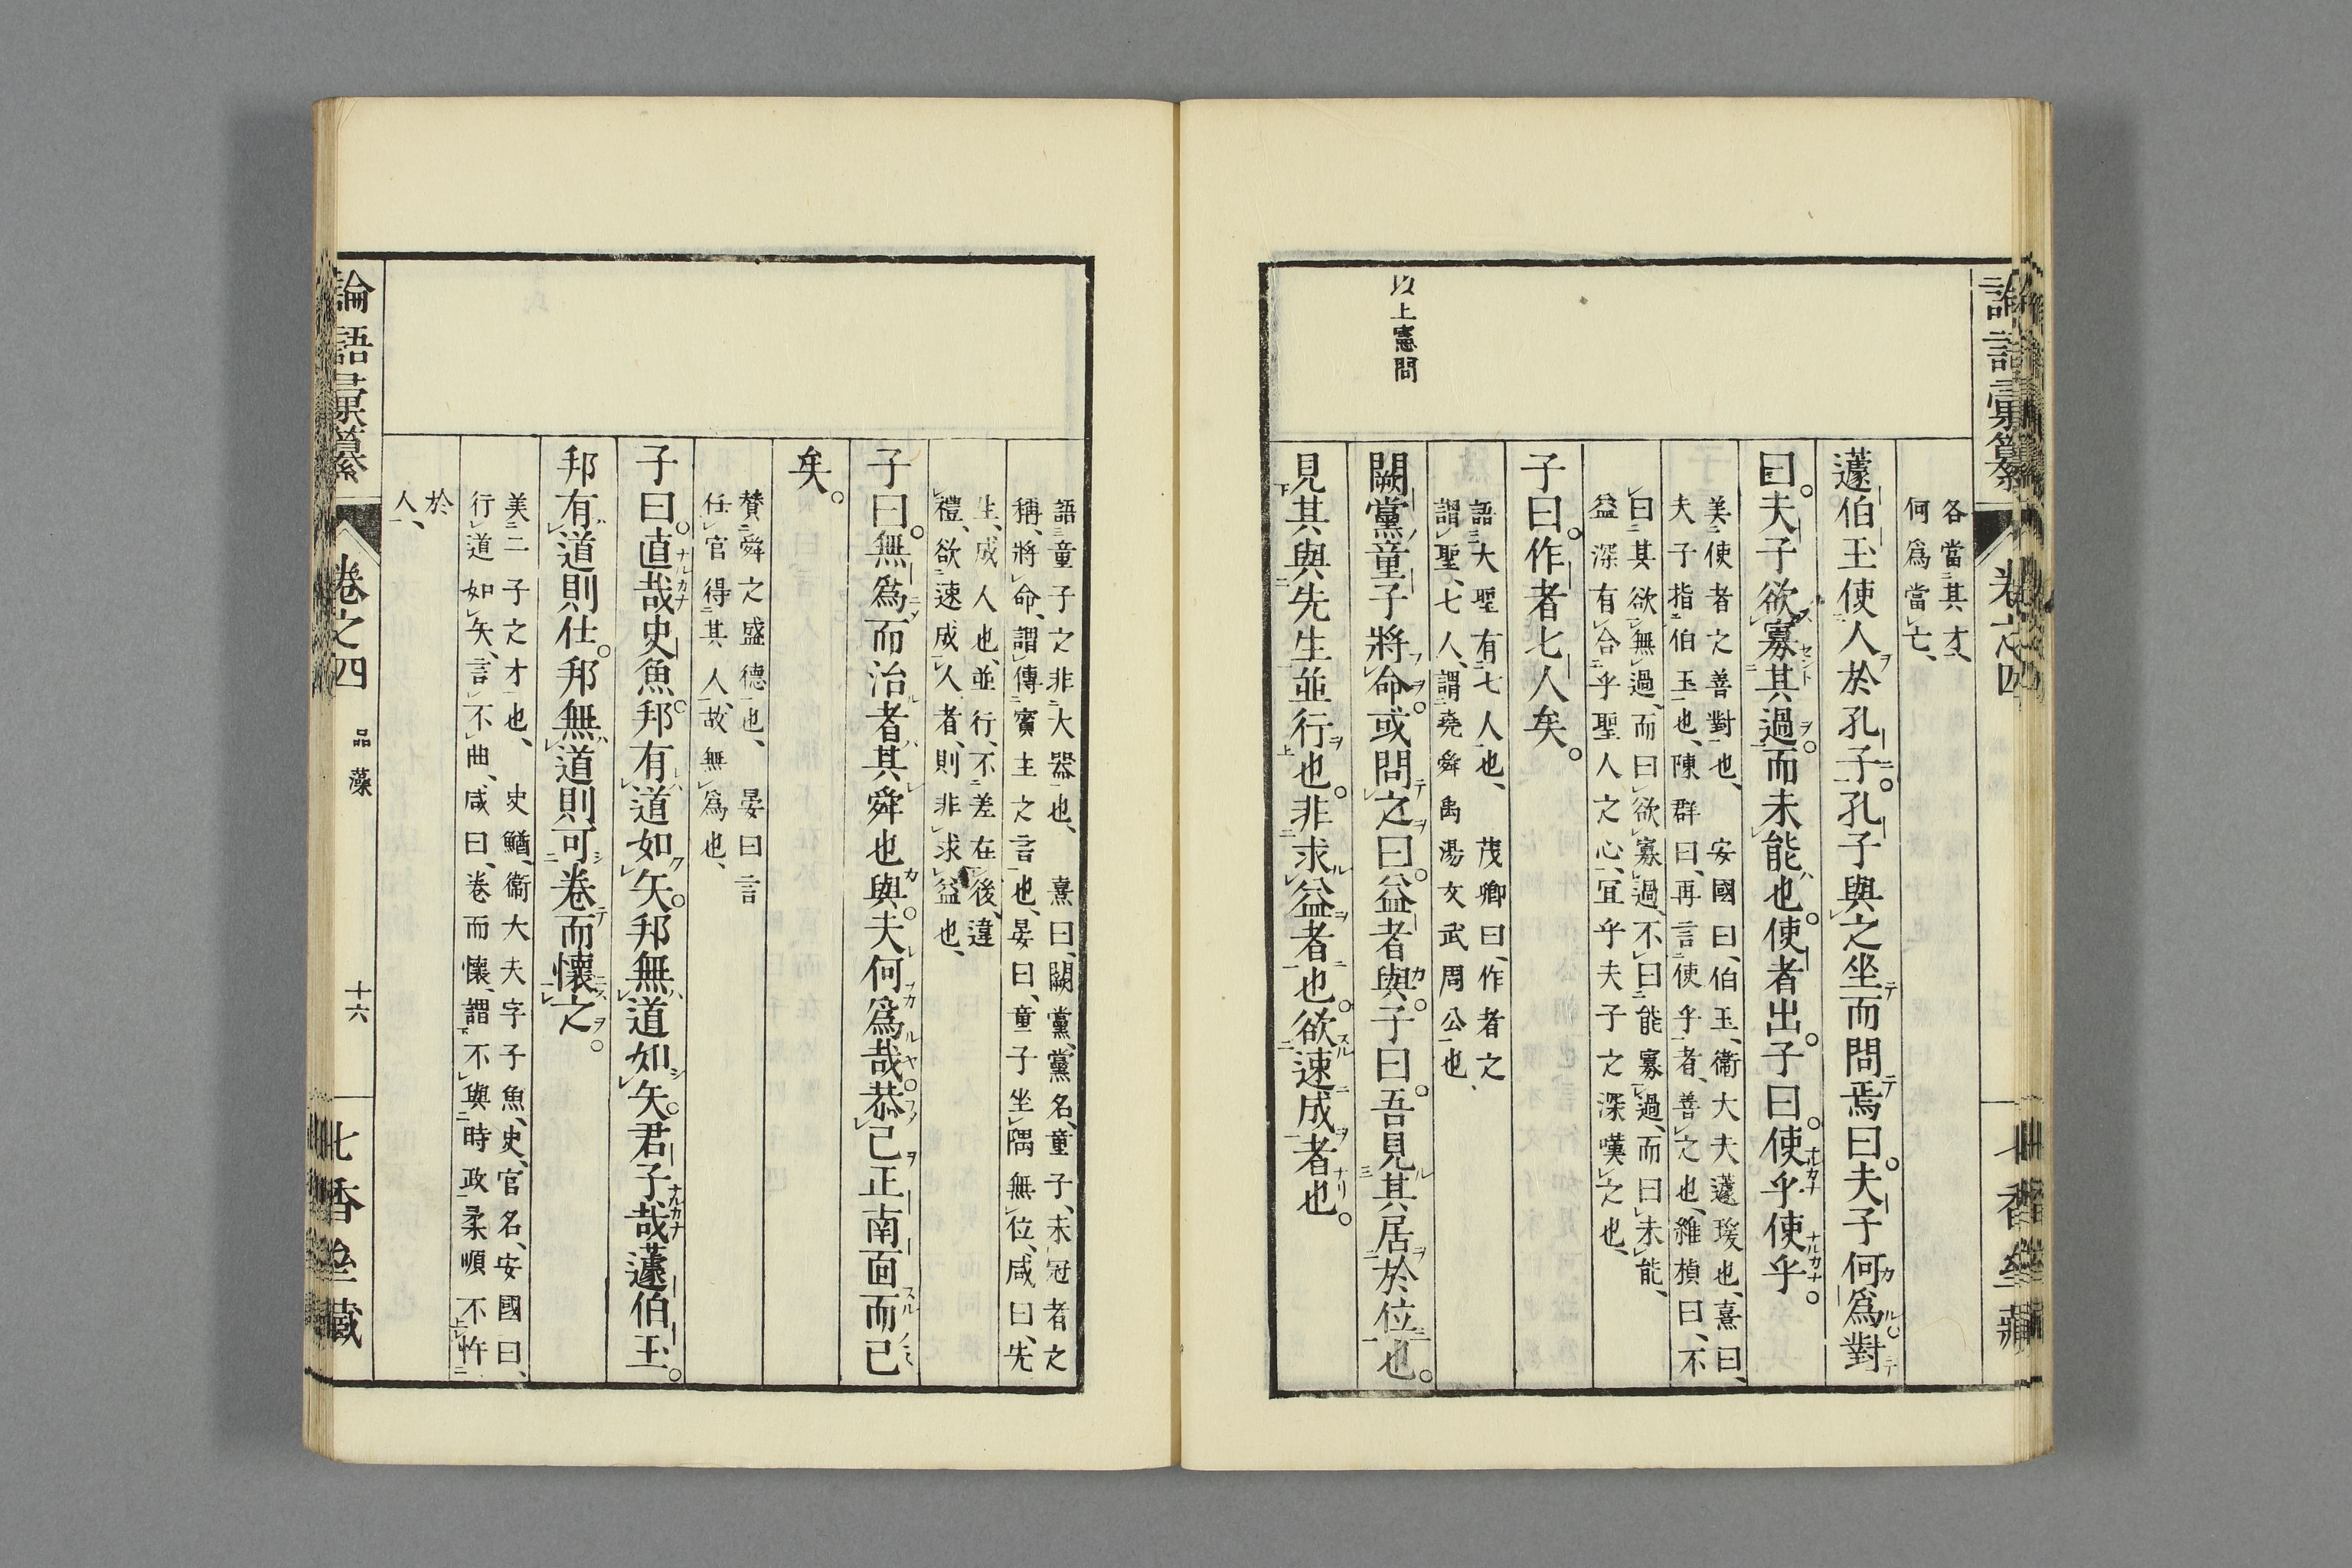 各當其才、
何爲當亡、
蘧伯玉使人於孔子。孔子與之坐而問焉曰。夫子何爲。對
曰。夫子欲寡其過。而未能也。使者出。子曰。使乎使乎。
美使者之善對也、　安國曰、伯玉、衞大夫蘧瑗也、熹曰、
夫子指伯玉也、陳群曰、再言使乎者、善之也、維楨曰、不
曰其欲無過、而曰欲寡過、不曰能寡過、而曰未能、
益深有合乎聖人之心、宜乎夫子之深嘆之也、
子曰。作者七人矣。
語大聖有七人也、　茂卿曰、作者之
謂聖、七人、謂堯舜禹湯文武周公也、
以上憲問
闕黨童子將命。或問之曰。益者與。子曰。吾見其居於位也。
見其與先生並行也。非求益者也。欲速成者也。
語童子之非大器也、　熹曰、闕黨、黨名、童子、未冠者之
稱、將命、謂傳賓主之言也、晏曰、童子坐隅無位、咸曰、先
生、成人也、並行、不差在後、違
禮、欲速成人者、則非求益也、
子曰。無爲而治者其舜也與。夫何爲哉。恭己正南面而已
矣。
賛舜之盛德也、　晏曰言
任官得其人、故無爲也、
子曰。直哉史魚。邦有道如矢。邦無道如矢。君子哉蘧伯玉。
邦有道則仕。邦無道則可卷而懷之。
美二子之才也、　史鰌、衞大夫字子魚、史、官名、安國曰、
行道如矢、言不曲、咸曰、卷而懷、謂不與時政柔順不忤
於
人、
論語彙纂　卷之四　品藻　十六　七香堂藏
論語彙纂　卷之四　七香堂藏